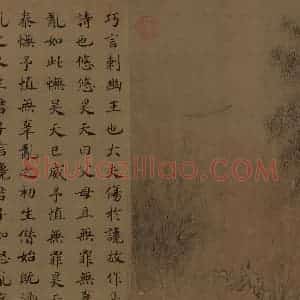 巧言刺幽王也大夫傷於讒故作
詩也悠悠昊天曰父母且無罪無
亂如此憮昊天已威予慎無罪昊天
泰憮予慎無辜亂之初生僭始既涵
亂之又生君子信讒君子如怒亂